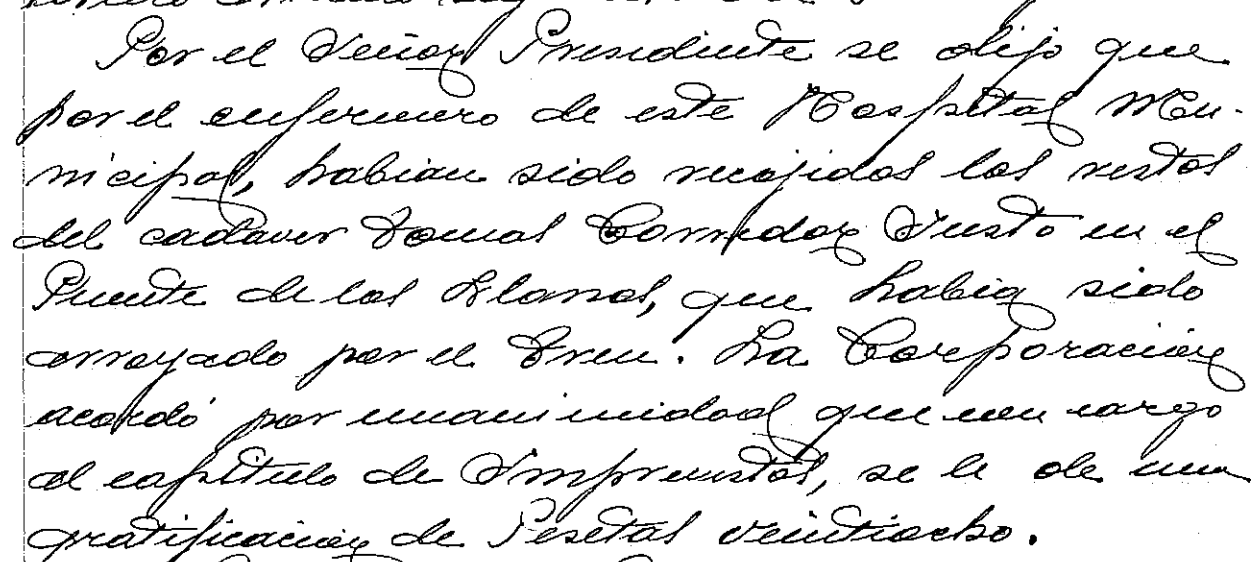 Por el Señor Presidente se dijo que
por el enfermero de este Hospital Mu-
nicipal, habian sido recojidos los restos
del cadaver Tomas Corredor Justo en el
Puente de los Llanos, que habia sido
arroyado por el Tren. La Corporación
acordó por unanimidad que con cargo
al capitulo de Imprevistos, se le de una
gratificacion de Pesetas veintiocho.